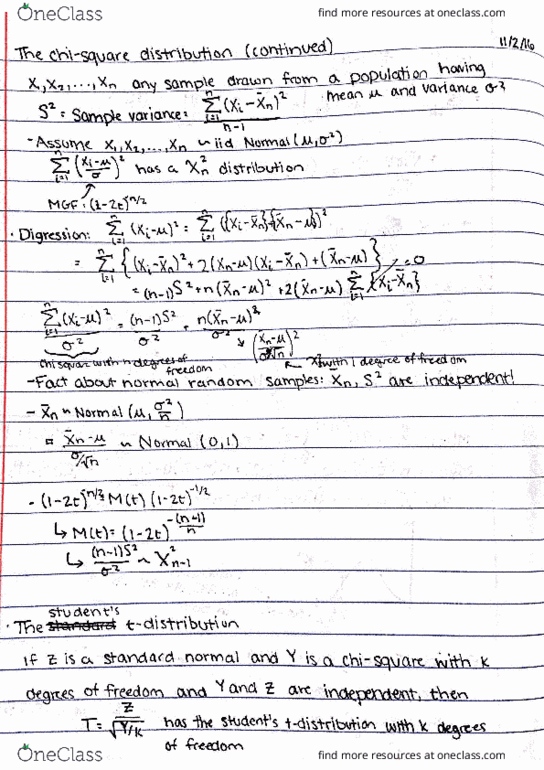 OneClass
find more resources at oneclass.com
The chi-square distribution (continued) 11/2/16
X₁, X₂, ..., Xn any sample drawn from a population having
mean μ and variance σ²
S² = Sample variance = Σⁿᵢ₌₁ (Xi - X̄n)² / n-1
- Assume X₁, X₂, ..., Xn ~ iid Normal (μ, σ²)
Σⁿᵢ₌₁ (Xi-μ / σ)² has a Xn² distribution
MGF: (1-2t)^n/2
• Digression: Σⁿᵢ₌₁ (Xi-μ)² = Σⁿᵢ₌₁ ({Xi-X̄n}+{X̄n-μ})²
= Σⁿᵢ₌₁ {(Xi-X̄n)² + 2(X̄n-μ)(Xi-X̄n) + (X̄n-μ)}
= (n-1)S² + n(X̄n-μ)² + 2(X̄n-μ) Σⁿᵢ₌₁ {Xi-X̄n} = 0
Σⁿᵢ₌₁ (Xi-μ)² / σ² = (n-1)S² / σ² + n(X̄n-μ)² / σ²
(X̄n-μ / σ/√n)²
chi square with n degrees of freedom
X² with 1 degree of freedom
- Fact about normal random samples: X̄n, S² are independent!
- X̄n ~ Normal (μ, σ²/n)
= X̄n-μ / σ/√n ~ Normal (0,1)
- (1-2t)^n/2 M(t) (1-2t)^-1/2
↳ M(t) = (1-2t)^-(n-1)/n
↳ (n-1)S² / σ² ~ X²n-1
student's
• The standard t-distribution
If Z is a standard normal and Y is a chi-square with k
degrees of freedom and Y and Z are independent, then
T = Z / √Y/K has the student's t-distribution with k degrees
of freedom
OneClass
find more resources at oneclass.com